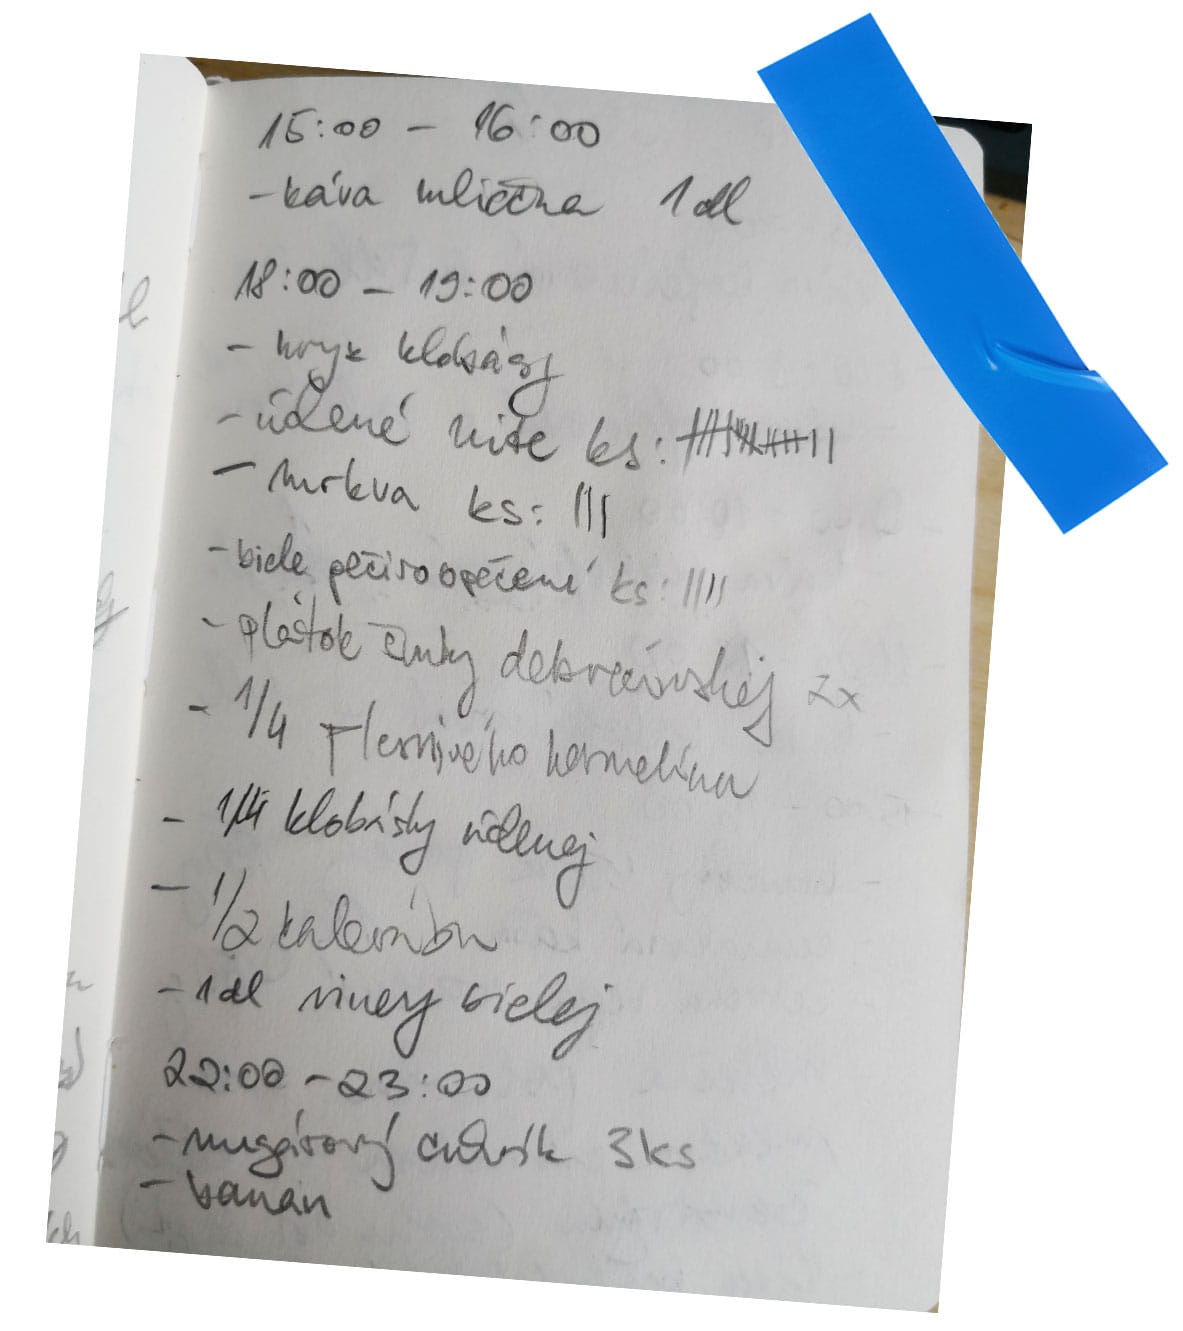 15:00 - 16:00
- káva mliečna 1dl
18:00 - 19:00
- hryz klobásy
- údené nite ks:
- mrkva ks: |||
- biele pečivo opečené ks: ||||
- plátok šunky debrecínskej 2x
- 1/4 plesnivého hermelínu
- 1/4 klobásky údenej
- 1/2 kalerábu
- 1dl viney bielej
22:00 - 23:00
- nugátový cukrík 3ks
- banán